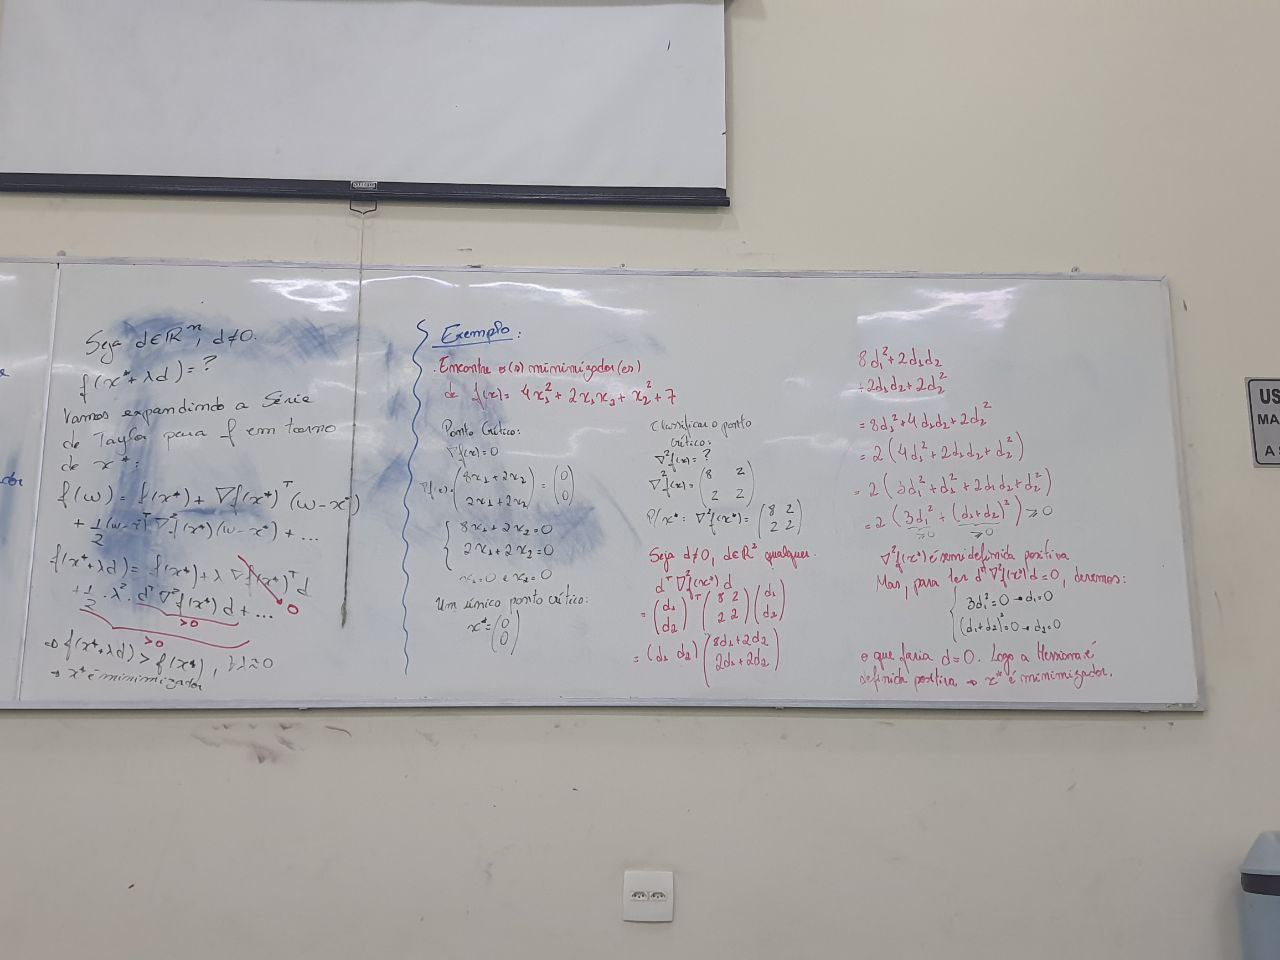 Seja d∈ℝⁿ, d≠0.
f(x*+λd)=?
Vamos expandindo a Série
de Taylor para f em torno
de x*:
f(w) = f(x*) + ∇f(x*)ᵀ(w-x*)
+ 1/2 (w-x*)ᵀ ∇²f(x*)(w-x*) + ...
f(x*+λd) = f(x*) + λ ∇f(x*)ᵀ d
0
+ 1/2 · λ² · dᵀ ∇²f(x*) d + ...
>0
>0
⇒ f(x*+λd) > f(x*), λ≈0
→ x* é minimizador
Exemplo:
. Encontre o(s) minimizador(es)
de f(x) = 4x₁² + 2x₁x₂ + x₂² + 7
Ponto Crítico:
∇f(x)=0
∇f(x) = (8x₁+2x₂
2x₁+2x₂) = (0
0)
{ 8x₁+2x₂=0
2x₁+2x₂=0
x₁=0 e x₂=0
Um único ponto crítico:
x* = (0
0)
Classificar o ponto
crítico:
∇²f(x)=?
∇²f(x) = (8 2
2 2)
P/ x*: ∇²f(x*) = (8 2
2 2)
Seja d≠0, d∈ℝ² qualquer.
dᵀ∇²f(x*)d
= (d₁
d₂)ᵀ (8 2
2 2) (d₁
d₂)
= (d₁ d₂) (8d₁+2d₂
2d₁+2d₂)
8d₁²+2d₁d₂
+2d₁d₂+2d₂²
= 8d₁²+4d₁d₂+2d₂²
= 2(4d₁²+2d₁d₂+d₂²)
= 2(3d₁²+d₁²+2d₁d₂+d₂²)
= 2(3d₁²+(d₁+d₂)²) ≥0
≥0 ≥0
∇²f(x*) é semidefinida positiva
Mas, para ter dᵀ∇²f(x*)d=0, devemos:
{ 3d₁²=0 → d₁=0
(d₁+d₂)²=0 → d₂=0
o que faria d=0. Logo a Hessiana é
definida positiva → x* é minimizador.
US
MA
A S